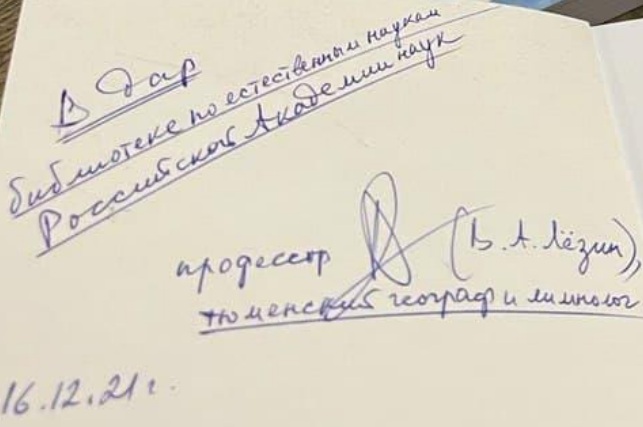 В дар
библиотеке по естественным наукам
Российской Академии наук
профессор (В.А. Лёзин),
тюменский географ и лимнолог
16.12.21 г.